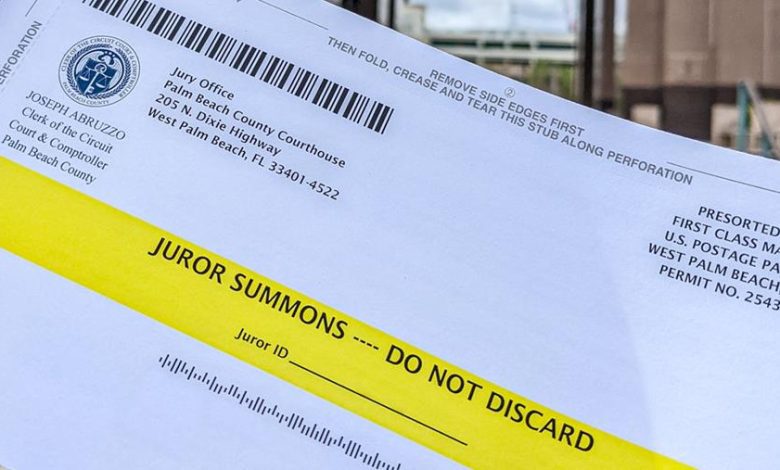 REMOVE SIDE EDGES FIRST
②
THEN FOLD, CREASE AND TEAR THIS STUB ALONG PERFORATION
PERFORATION
JOSEPH ABRUZZO
Clerk of the Circuit
Court & Comptroller
Palm Beach County
Jury Office
Palm Beach County Courthouse
205 N. Dixie Highway
West Palm Beach, FL 33401-4522
PRESORTED
FIRST CLASS MA
U.S. POSTAGE PA
WEST PALM BEACH,
PERMIT NO. 2543
JUROR SUMMONS ---- DO NOT DISCARD
Juror ID